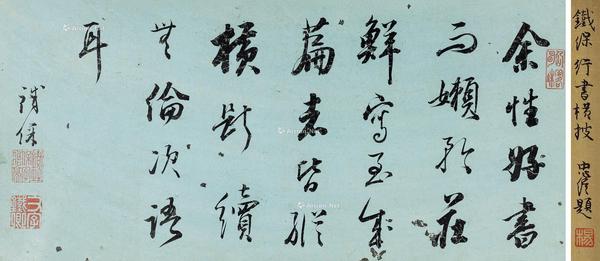 余性好書
而嬾矜莊
鮮寫至成
篇者皆縱
橫斷續
無倫次語
耳
鐵保
鐵保行書橫披
題